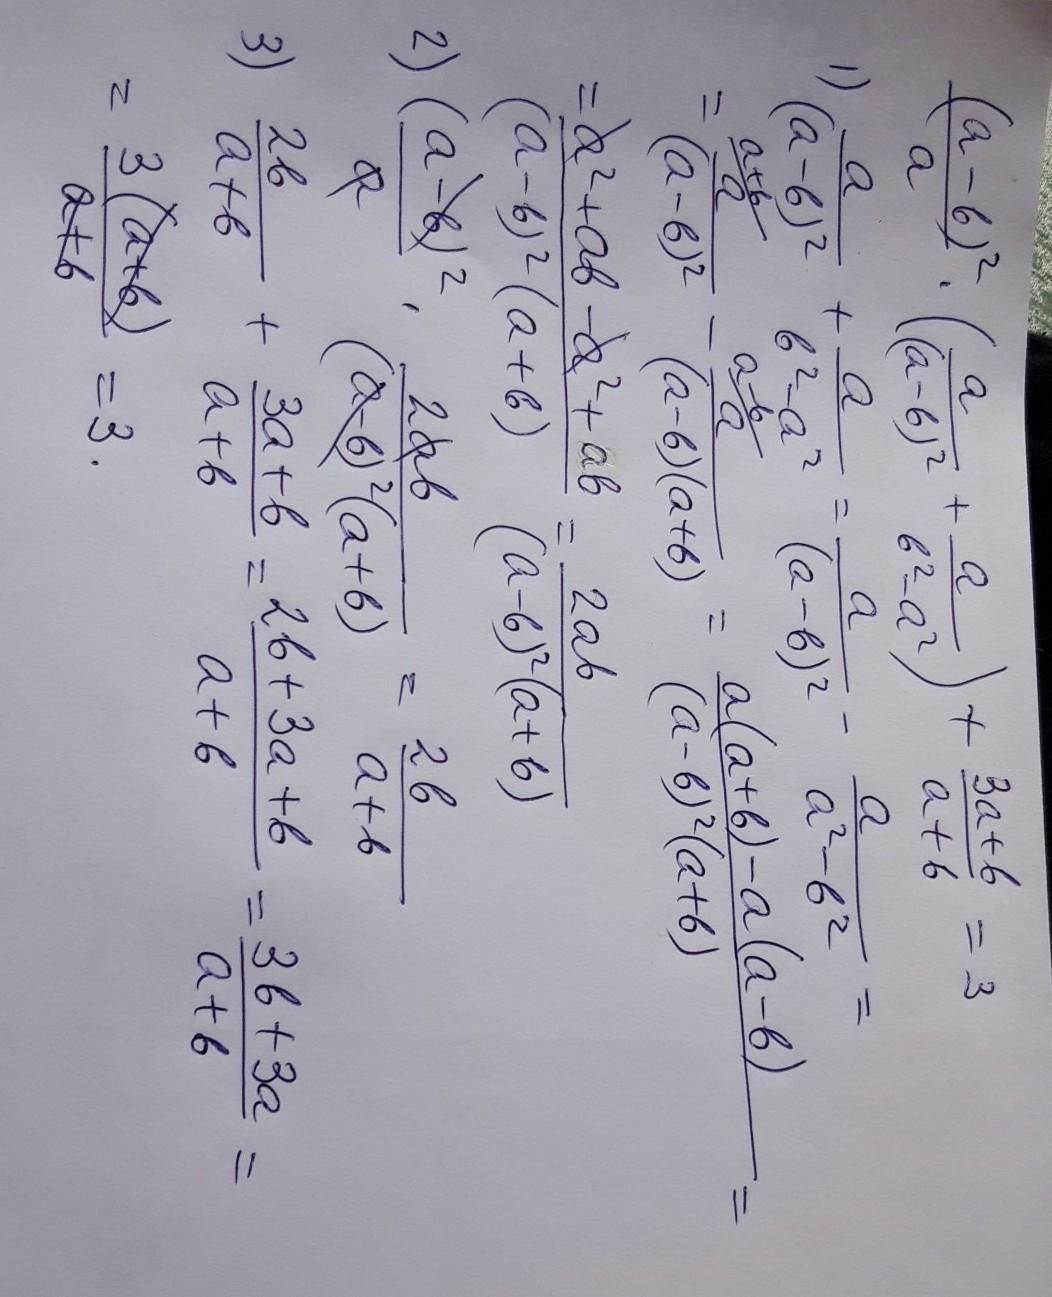 (a-b)²/a · (a/(a-b)² + a/(b²-a²)) + (3a+b)/(a+b) = 3
1) a/(a-b)² + a/(b²-a²) = a/(a-b)² - a/(a²-b²) =
= a+b/ a/(a-b)² - a-b/ a/((a-b)(a+b)) = (a(a+b)-a(a-b))/((a-b)²(a+b)) =
= (a²+ab-a²+ab)/((a-b)²(a+b)) = 2ab/((a-b)²(a+b))
2) (a-b)²/a · 2ab/((a-b)²(a+b)) = 2b/(a+b)
3) 2b/(a+b) + (3a+b)/(a+b) = (2b+3a+b)/(a+b) = (3b+3a)/(a+b) =
= 3(a+b)/(a+b) = 3.